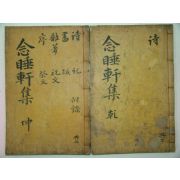 詩
念睡軒集 乾
詩 記 附錄
書 跋
雜著 祝文
序 祭文
念睡軒集 坤